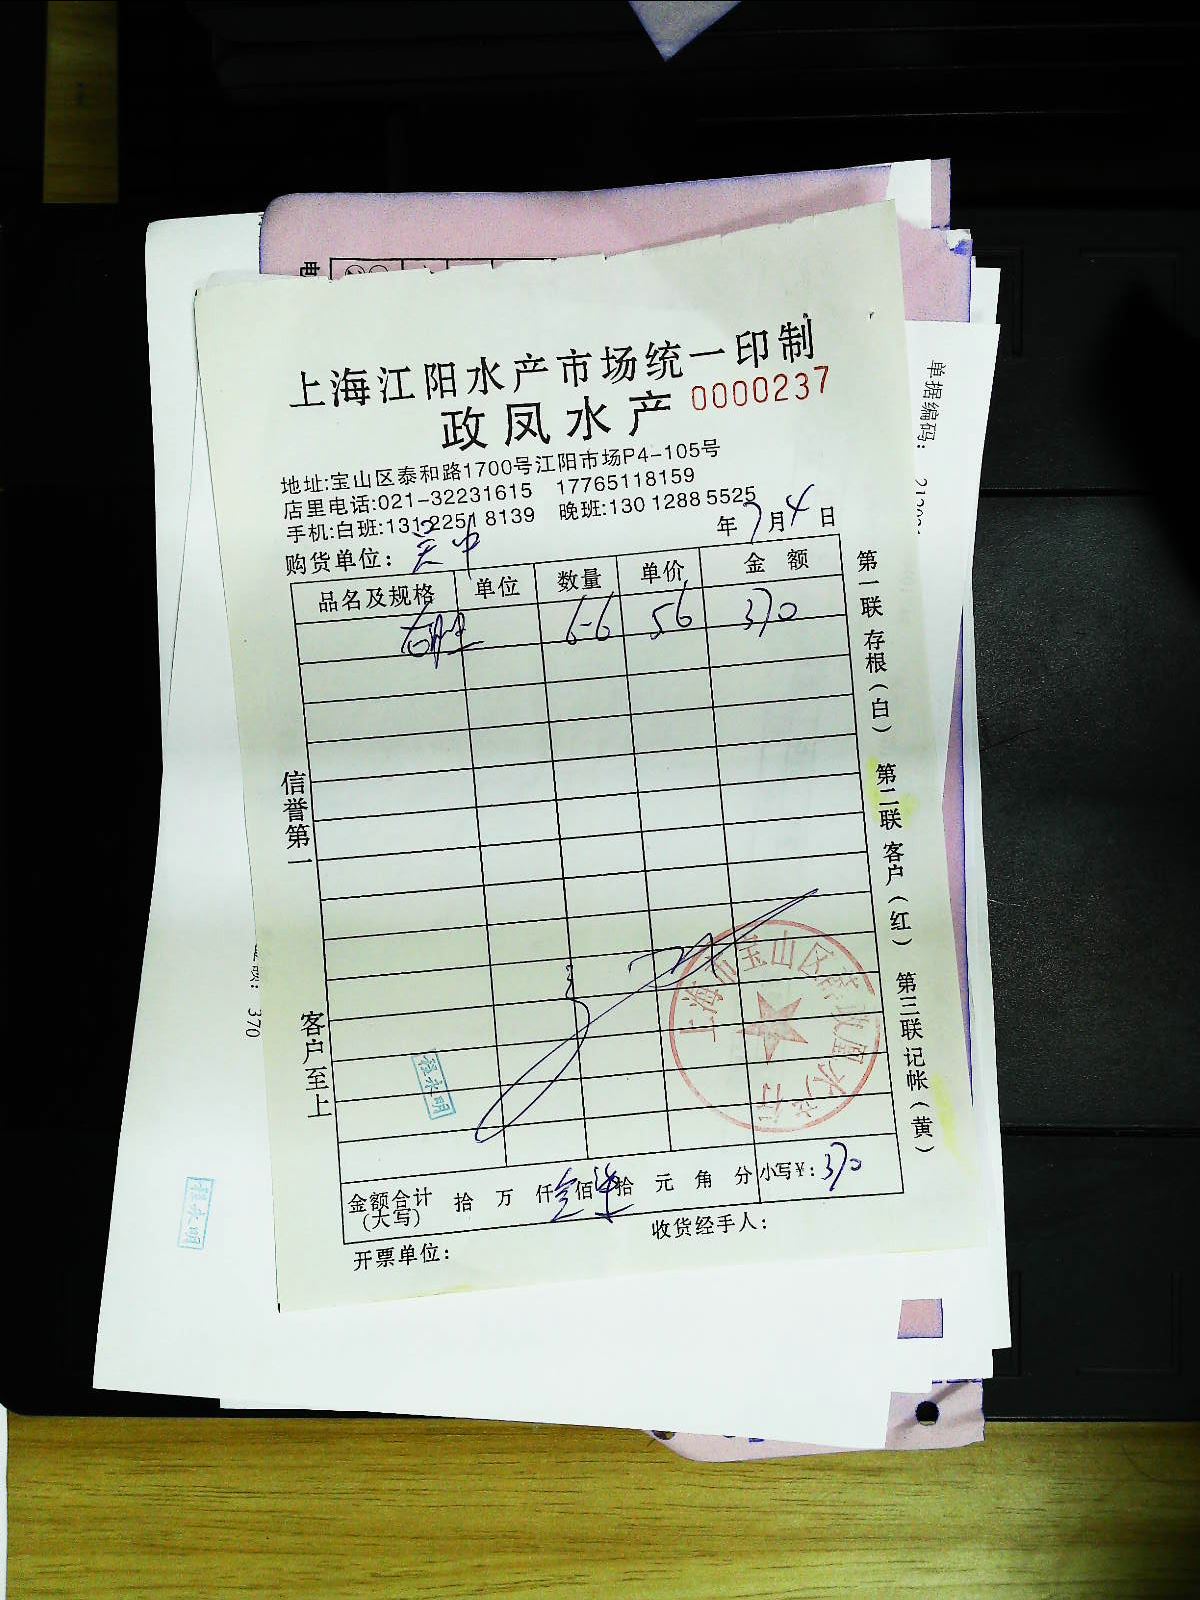 上海江阳水产市场统一印制
政凤水产 0000237
地址:宝山区泰和路1700号江阳市场P4-105号
店里电话:021-32231615 17765118159
手机:白班:131 2251 8139 晚班:130 1288 5525
购货单位: 年 7 月 4 日
品名及规格 单位 数量 单价 金额
6-6 56 370
信誉第一
客户至上
第一联 存根(白) 第二联 客户(红) 第三联 记帐(黄)
上海市宝山区 凤水产行
程永明
金额合计 (大写) 拾 万 仟 叁 佰 柒 拾 元 角 分 小写¥: 370
开票单位: 收货经手人:
单据编码:
370
程永明